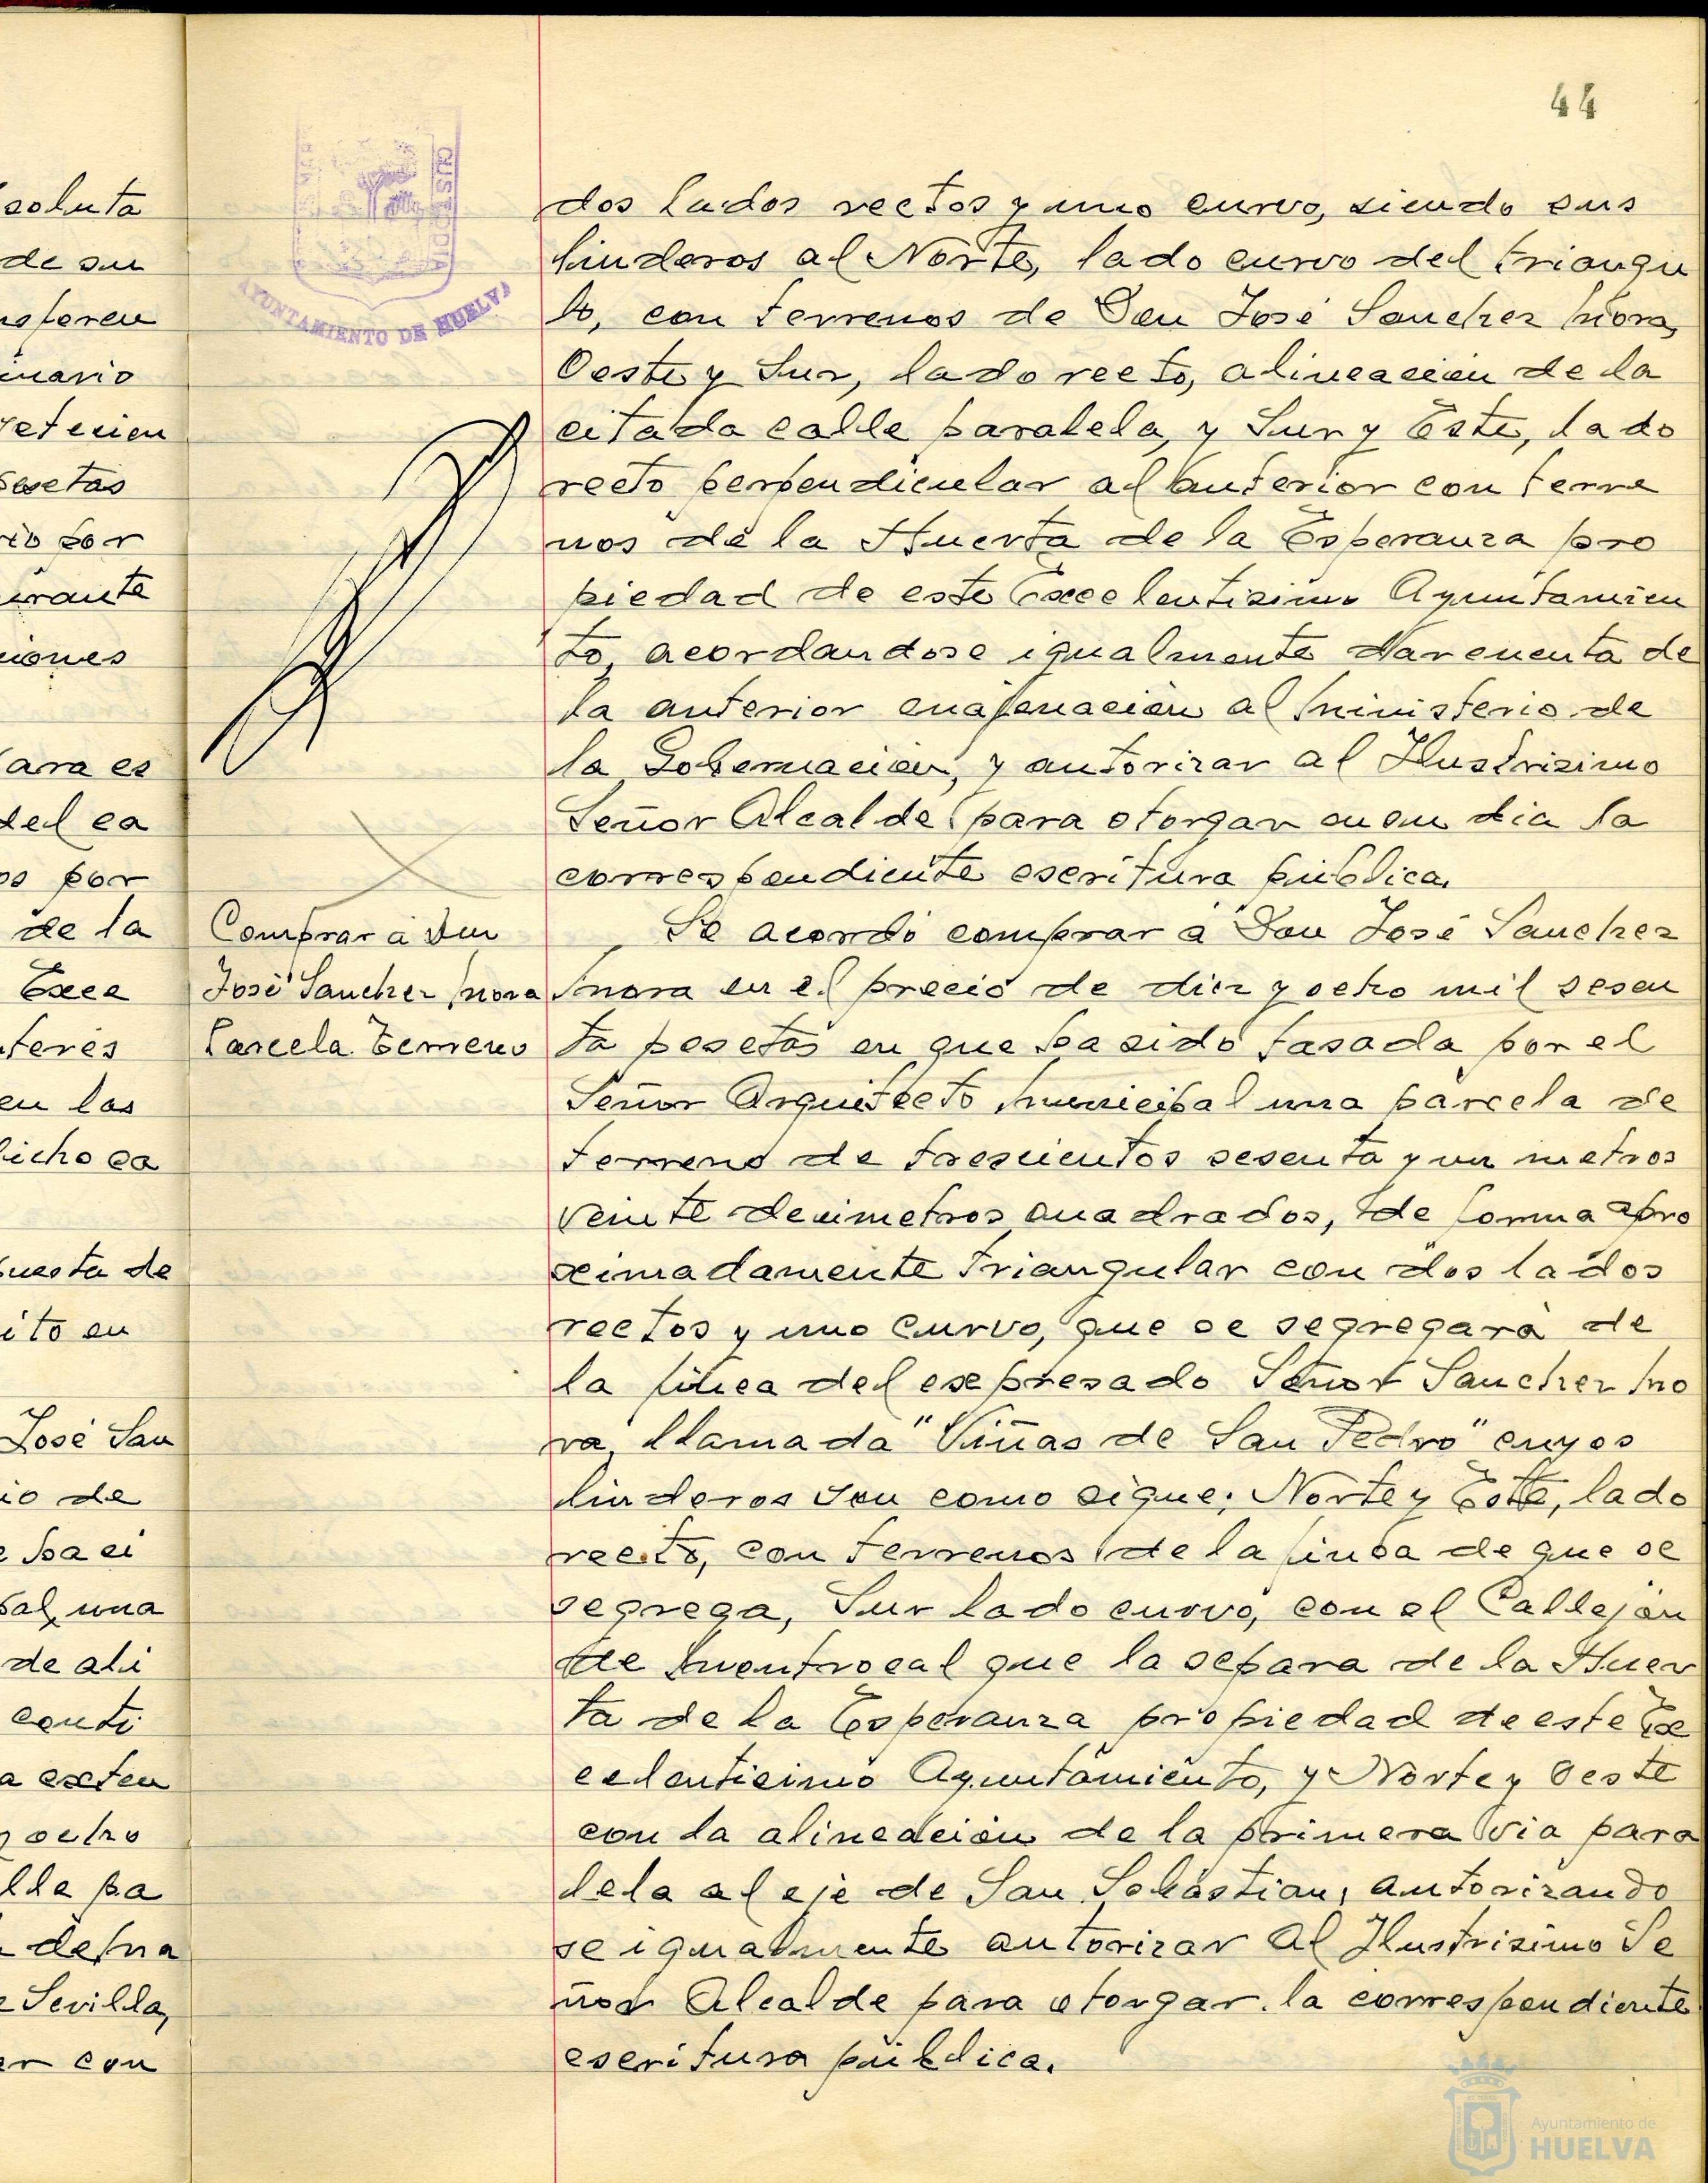 44
soluta
de su
nsferen
inario
setecien
esetas
rio por
urante
ciones
ara es
del ca
os por
de la
Exce
nteres
en las
dicho ca
uesta de
ito en
José San
io de
e ha si
pal, una
de ali
conti
a exten
y ocho
lle pa
Sevilla,
r con
AYUNTAMIENTO DE HUELVA
CUSTODIA
Comprar a Don
José Sanchez Mora
Parcela Terreno
dos lados rectos y uno curvo, siendo sus
linderos al Norte, lado curvo del triangu
lo, con terrenos de Don José Sanchez Mora,
Oeste y Sur, lado recto, alineación de la
citada calle paralela, y Sur y Este, lado
recto perpendicular al anterior con terre
nos de la Huerta de la Esperanza pro
piedad de este Excelentisimo Ayuntamien
to, acordandose igualmente dar cuenta de
la anterior enajenación al Ministerio de
la Gobernación, y autorizar al Ilustrisimo
Señor Alcalde para otorgar en su dia la
correspondiente escritura pública.
Se acordó comprar a Don José Sanchez
Mora en el precio de diez y ocho mil sesen
ta pesetas en que ha sido tasada por el
Señor Arquitecto Municipal una parcela de
terreno de trescientos sesenta y un metros
veinte decimetros cuadrados, de forma apro
ximadamente triangular con dos lados
rectos y uno curvo, que se segregará de
la finca del expresado Señor Sanchez Mo
ra, llamada "Viñas de San Pedro" cuyos
linderos son como sigue: Norte y Este, lado
recto, con terrenos de la finca de que se
segrega, Sur lado curvo, con el Callejón
de Montrocal que la separa de la Huer
ta de la Esperanza propiedad de este Ex
celentisimo Ayuntamiento, y Norte y Oeste
con la alineación de la primera via para
lela al eje de San Sebastian, autorizando
se igualmente autorizar al Ilustrisimo Se
ñor Alcalde para otorgar la correspondiente
escritura pública.
Ayuntamiento de
HUELVA